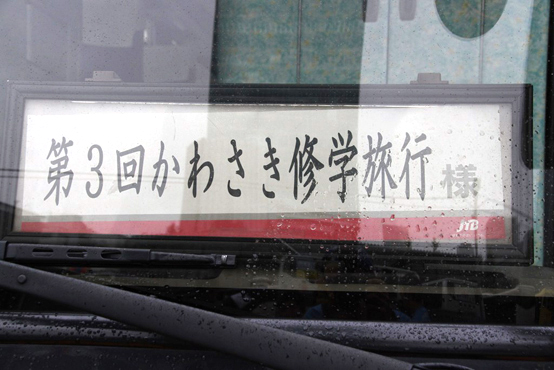 第3回かわさき修学旅行様
JTB